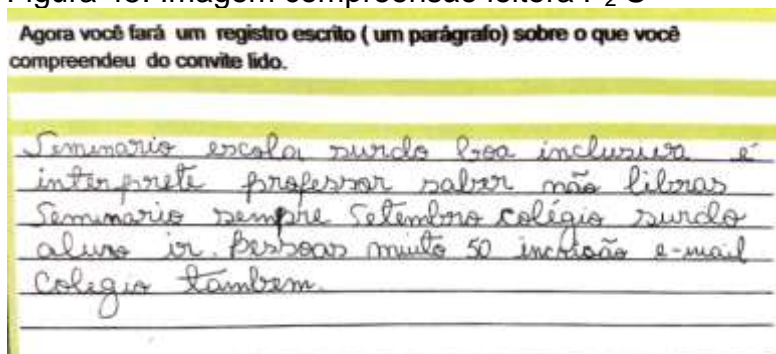 Agora você fará um registro escrito ( um parágrafo) sobre o que você
compreendeu do convite lido.
Seminario escola surdo boa inclusiva é
interprete professor saber não libras
Seminario sempre Setembro colégio surdo
aluno ir. Pessoas muito 50 e-mail
Colegio tambem.